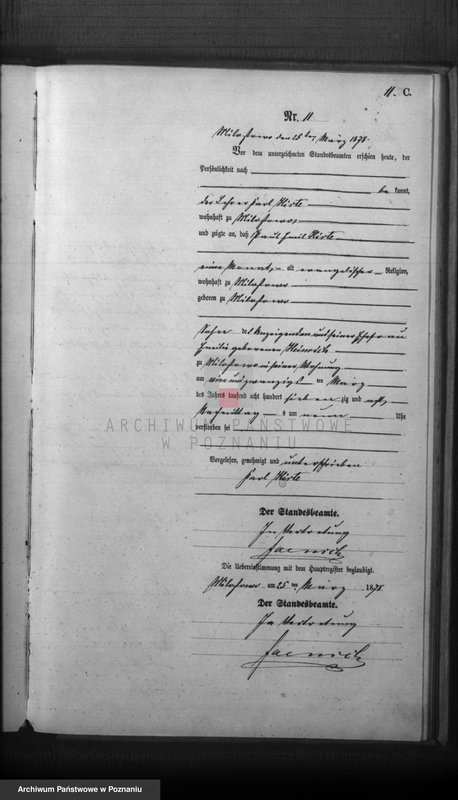 11. C.
Nr. 11
Milostowo den 25ten März 1878.
Vor dem unterzeichneten Standesbeamten erschien heute, der
Persönlichkeit nach
be kannt,
der Lehrer Karl
wohnhaft zu Milostowo
und zeigte an, daß Paul Emil
einen Monat alt evangelischer Religion,
wohnhaft zu Milostowo
geboren zu Milostowo
Sohn des Anzeigenden und seiner Ehefrau
geborenen
zu Milostowo in seiner Wohnung
am vier und zwanzigsten März
des Jahres tausend acht hundert sieben zig und acht
Nachmittag s um neun Uhr
verstorben sei
ARCHIWUM PAŃSTWOWE
W POZNANIU
Vorgelesen, genehmigt und unterschrieben
Karl
Der Standesbeamte.
In Vertretung
Die Uebereinstimmung mit dem Hauptregister beglaubigt.
Milostowo am 25 ten März 1878
Der Standesbeamte.
In Vertretung
Archiwum Państwowe w Poznaniu